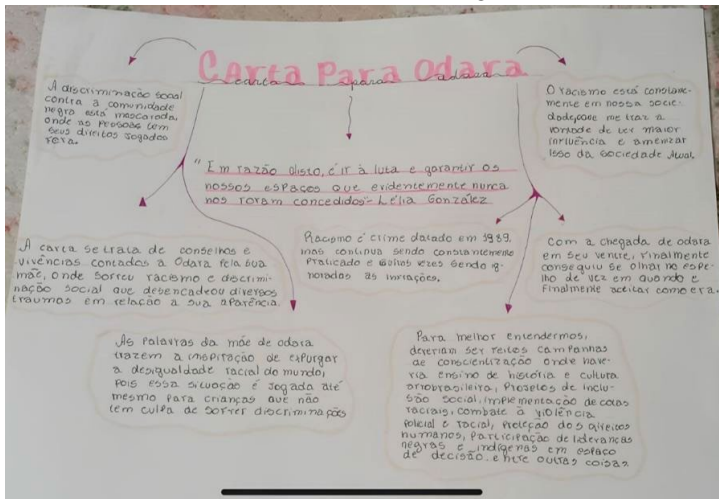 Carta Para Odara
carta para odara
A discriminação social
contra a comunidade
negra está mascarada,
onde as pessoas tem
seus direitos jogados
fora.
O racismo está constante-
mente em nossa socie-
dade, me traz a
vontade de ter maior
influência e amenizar
isso da sociedade atual.
"Em razão disto, é ir à luta e garantir os
nossos espaços que evidentemente nunca
nos foram concedidos"- Lélia González
A carta se trata de conselhos e
vivências contados a Odara pela sua
mãe, onde sofreu racismo e discrimi-
nação social que desencadeou diversos
traumas em relação a sua aparência.
Racismo é crime datado em 1989.
mas continua sendo constantemente
praticado e vezes sendo ig-
noradas as infrações.
Com a chegada de odara
em seu ventre, finalmente
conseguiu se olhar no espe-
lho de vez em quando e
Finalmente aceitar como era.
As palavras da mãe de odara
trazem a inspiração de expurgar
a desigualdade racial do mundo,
pois essa situação é jogada até
mesmo para crianças que não
tem culpa de sofrer discriminações
Para melhor entendermos,
deveriam ser feitos campanhas
de conscientização onde have-
ria ensino de história e cultura
afrobrasileira, Projetos de inclu-
são social, implementação de cotas
raciais, combate à violência
policial e racial, proteção dos direitos
humanos, participação de lideranças
negras e indígenas em espaço
de decisão, entre outras coisas